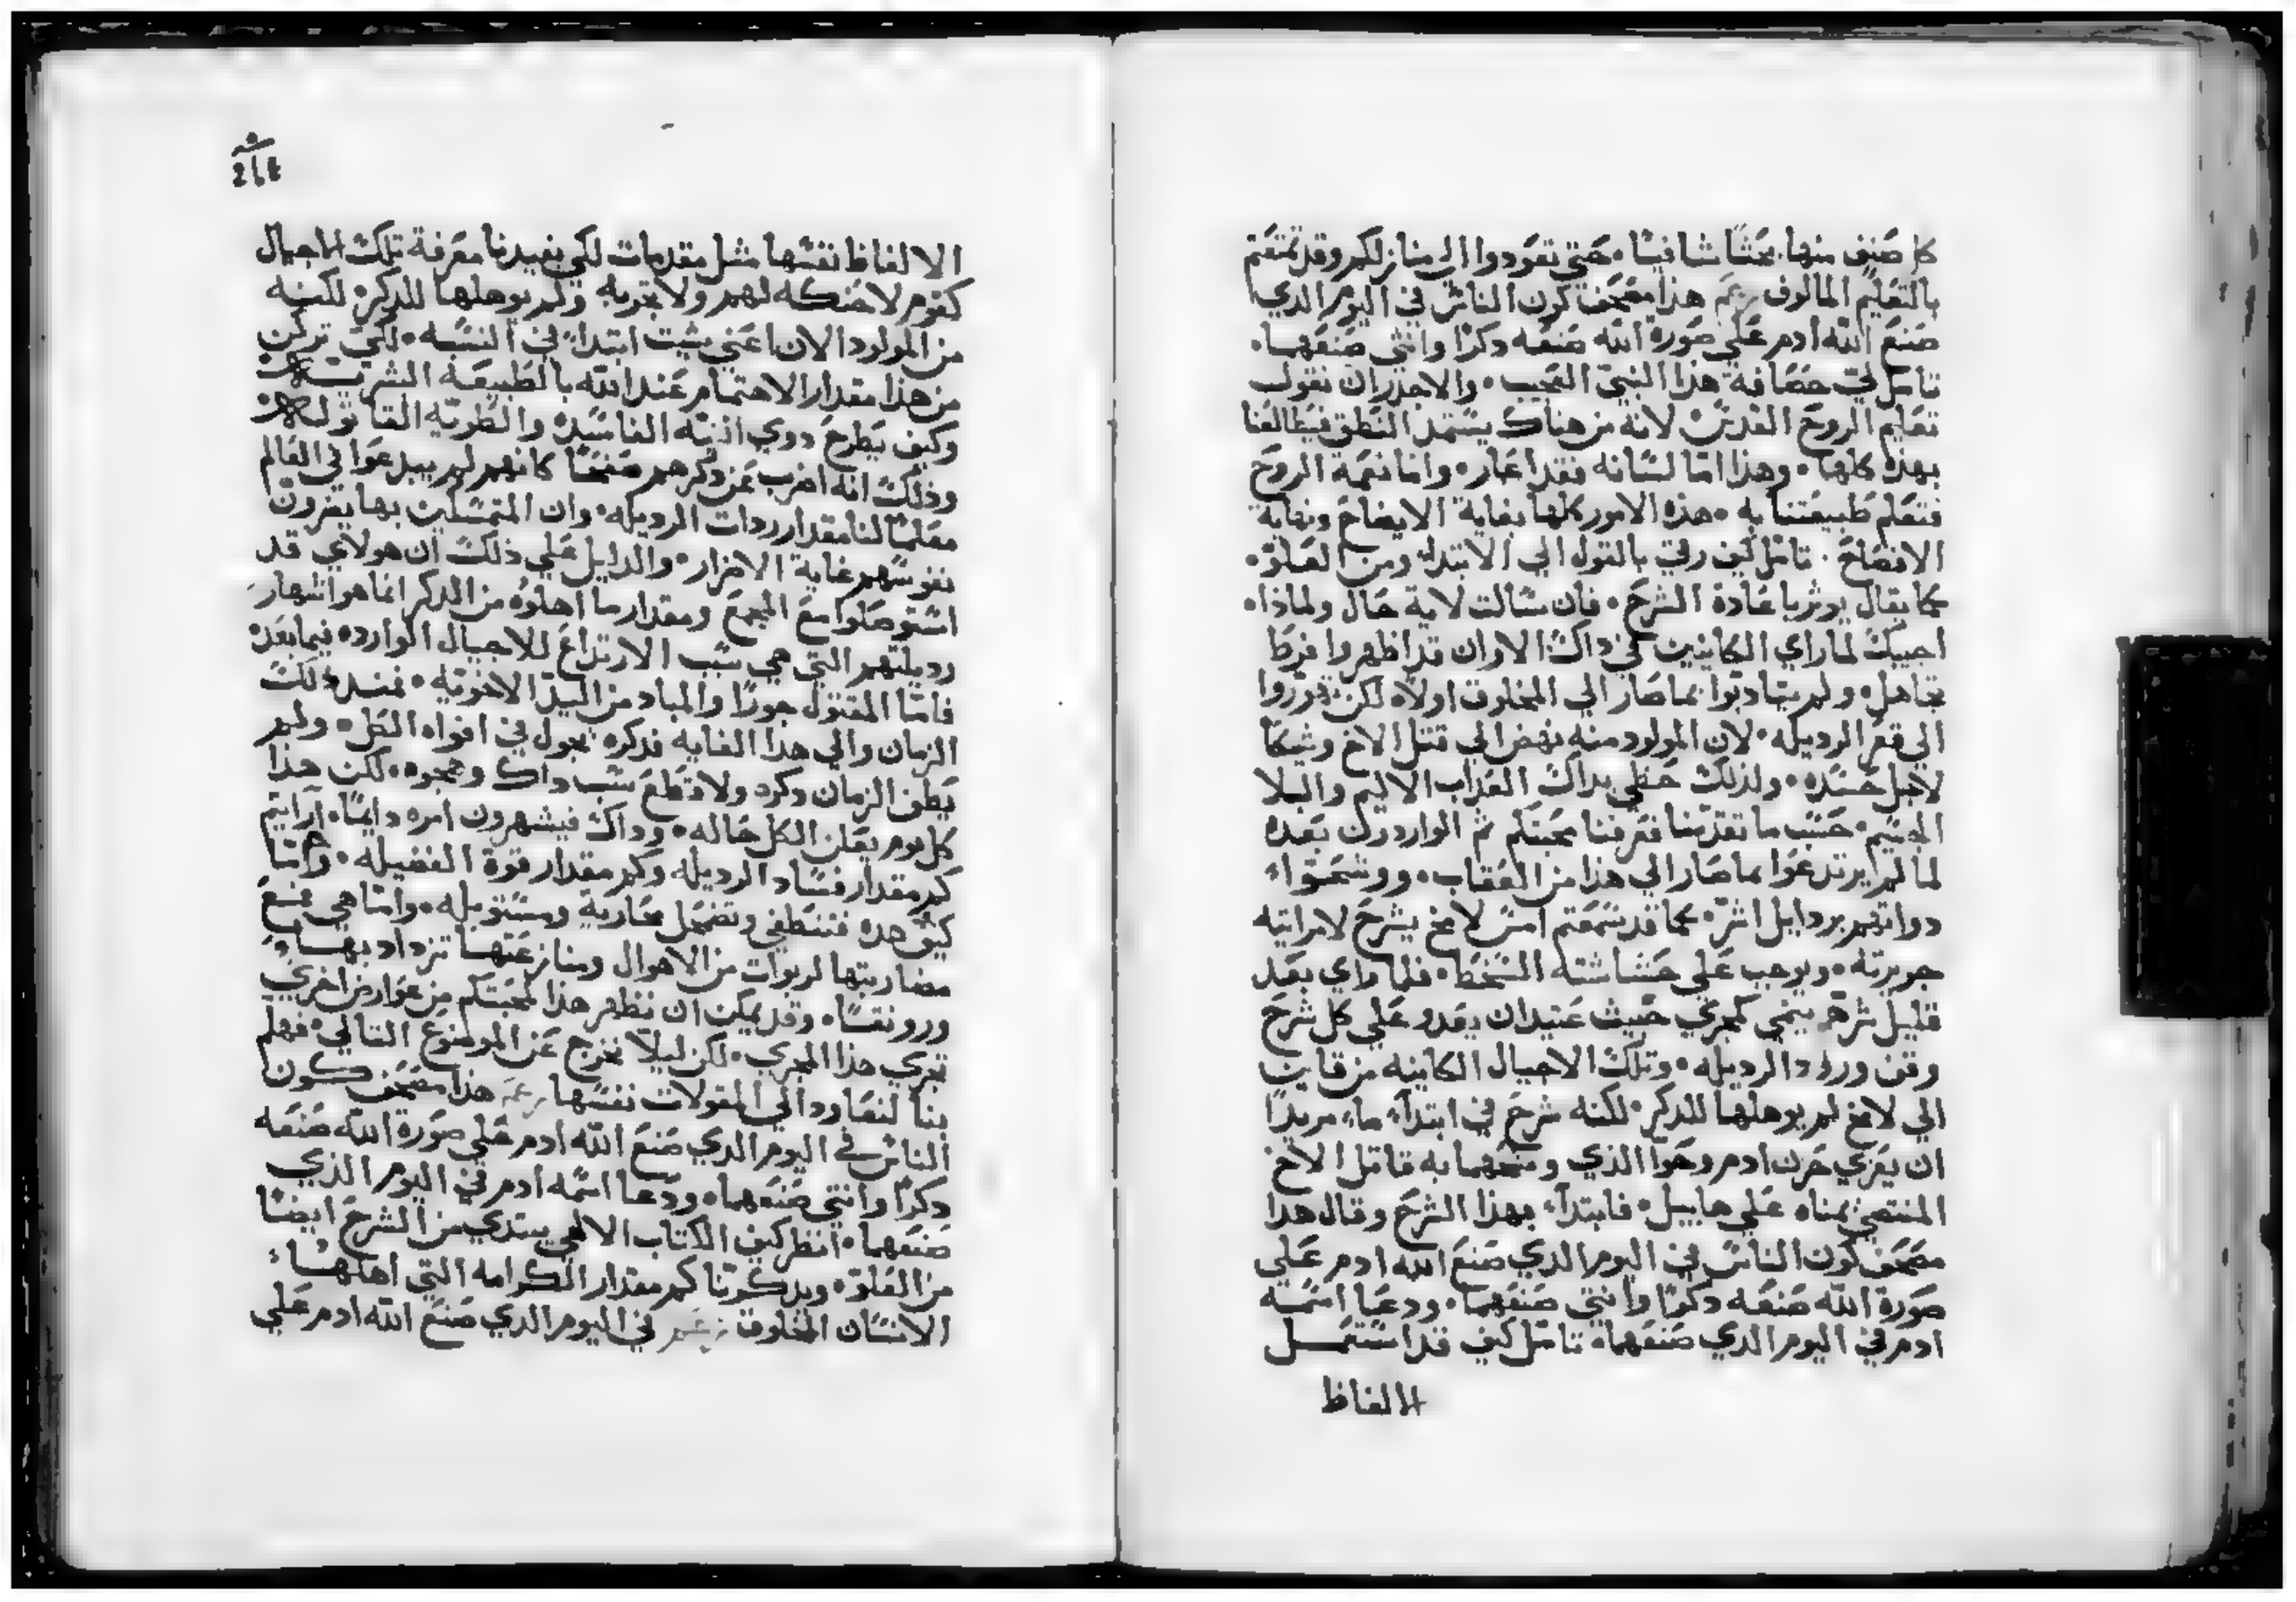 كل صنف منها بحثًا شافيًا. حتي تعودوا الي منازلكم وقد تمتعتم
بالتعليم المالوف زعم هذا مصحف كون الناس في اليوم الدي
صنع الله ادم علي صورة الله صنعه دكرًا وانثي صنعهما.
تامل لي حصافة هذا النبي العجيب. والاجدر ان نقول
تعليم الروح القدس لانه من هناك يستمد النطق فيطالعنا
بهذه كلها. وهذا امّا لسانه فقد اعار. وامّا نعمة الروح
فتعلم طبيعتنا به هذه الامور كلها بغاية الايضاح ونهاية
الافصاح. تامل كيف رقي بالقول الي الابتداء ومن العلو.
كما يقال يوثر يا عادة الشرح. فان سالت لاية حال ولماذا.
اجيبك لما راي الكاينين في داك الاوان قد اظهروا فرط
تجاهل. ولم يتادبوا بما صار الي المخلوق اولًا. لكن تهوروا
الي قعر الرديله. لان المولود منه نهض الي قتل الاخ وشيكًا
لاجل حسده. ولذلك حظي بداك العذاب الاليم والبلا
الجسيم. حسب ما تقدمنا فعرفنا محبتكم ثم الواردون بعده
لما لم يرتدعوا بما صار الي هذا من العقاب. ووشحوا
دواتهم بردايل اشرّ. كما قد سمعتم امس لامخ يشرح لامراتيه
جريرته. ويوجب علي حشاشته السخط. فلما راي بعد
قليل شرهم ينمي كمجري خبيث عتيد ان يعدو علي كل شرح
وقف ورود الرديله. وتلك الاجيال الكاينه من قاين
الي لامخ لم يوهلها للدكر. لكنه شرح في ابتداء ما مريدًا
ان يعزي حزن ادم وحوا الذي ومنحهما به قاتل الاخ
المنتضي يمناه علي هابيل. فابتداء بهذا الشرح وقال هدا
مصحف كون الناس في اليوم الدي صنع الله ادم علي
صورة الله صنعه دكرًا وانثي صنعهما. ودعا اسمه
ادم في اليوم الدي صنعهما. تامل كيف قد استعمل
الالفاظ
الالفاظ نفسها مثل مقدمات لكي يفيدنا معرفة تلك الاجيال
كقوم لا حنكه لهم ولا تجربه ولم يوهلها للدكر. لكنه
من المولود الان اعني شيت ابتداء في النسبه. لكي تركن
من هذا مقدار الاهتمام عند الله بالطبيعة البشريه
وكيف يطرح دوي النيّه الفاسده والطويّه القاتوليه
وذلك انه اضرب عن دكرهم صفحًا كانهم لم يبدعوا في العالم
معلمًا لنا مقدار ردات الرديله. وان المتمسكين بها يضرون
نفوسهم غاية الاضرار. والدليل علي ذلك ان هولاي قد
استوصلوا مع الجميع ومقدار ما اهلوه من الدكر انما هو اشهار
رديلتهم التي هي سبب الارتداع للاجيال الوارده فيما بعد
فامّا المقتول جورًا والمباد من اليد الاخويّه. فمند ذلك
الزمان والي هدا الغايه فدكره يجول في افواه الكل. ولم
يطف الزمان دكره ولا قطع سب داك وهجوه. لكن هذا
كل يوم يعلن الكل حاله. وداك فيشهرون امره دايمًا. ارايتم
كم مقدار فساد الرديله وكم مقدار قوة الفضيله. وامّا
كيف هده فتنطفي وتضمحل محاربة ومستوبله. وامّا هي فمع
مضاربتها لربوات من الاهوال ومنازعتها تزداد بهاء
ورونقًا. وقد يمكن ان نظهر هذا لمحبتكم من عوارض اخري
تجري هذا المجري. لكن ليلا نخرج عن الموضوع التالي. فهلم
بنا لنعاود الي المقولات نفسها زعم هذا مصحف كون
الناس في اليوم الدي صنع الله ادم علي صورة الله صنعه
دكرًا وانثي صنعهما. ودعا اسمه ادم في اليوم الذي
صنعهما. انظر كيف الكتاب الالهي يبتدي من الشرح ايضًا
من العلو. ويدكرنا كم مقدار الكرامه التي اهلها
الانسان المخلوق زعم في اليوم الدي صنع الله ادم علي